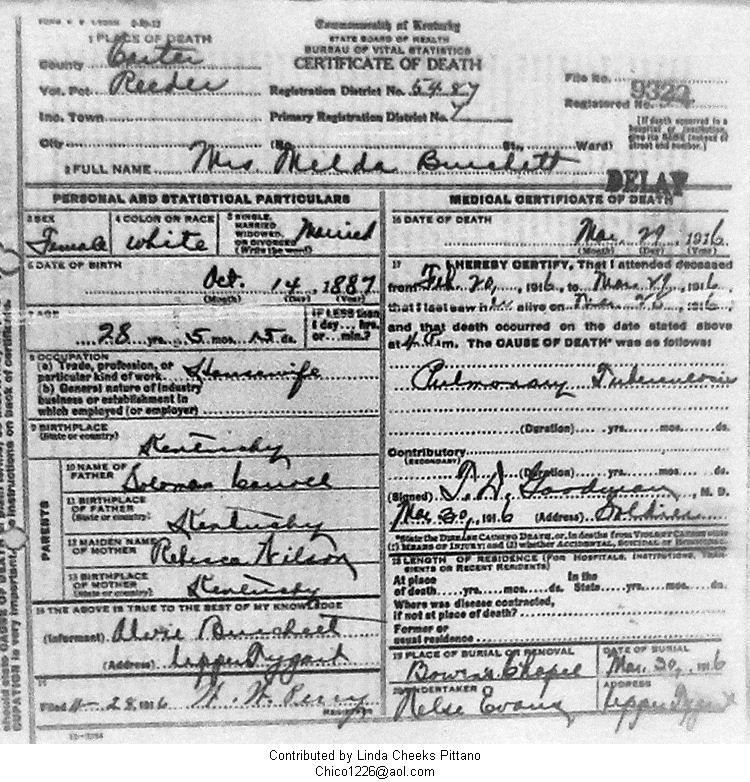 Commonwealth of Kentucky
STATE BOARD OF HEALTH
BUREAU OF VITAL STATISTICS
CERTIFICATE OF DEATH
1 PLACE OF DEATH
County Carter
Vot. Pct. Reeder
Inc. Town
City
Registration District No. 5487
Primary Registration District No. 7
(No. St., Ward)
File No. 9322
Registered No.
[If death occurred in a hospital or institution, give its NAME instead of street and number.]
2 FULL NAME Mrs Melda Burchett
DELAY
PERSONAL AND STATISTICAL PARTICULARS
3 SEX Female
4 COLOR OR RACE White
5 SINGLE, MARRIED WIDOWED, OR DIVORCED (Write the word) Married
6 DATE OF BIRTH Oct. 14, 1887
(Month) (Day) (Year)
7 AGE 28 yrs. 5 mos. 15 ds.
IF LESS than 1 day... hrs. or... min.?
8 OCCUPATION
(a) Trade, profession, or particular kind of work Housewife
(b) General nature of industry business or establishment in which employed (or employer)
9 BIRTHPLACE (State or country) Kentucky
PARENTS
10 NAME OF FATHER Soloman
11 BIRTHPLACE OF FATHER (State or country) Kentucky
12 MAIDEN NAME OF MOTHER Rebecca Wilson
13 BIRTHPLACE OF MOTHER (State or country) Kentucky
14 THE ABOVE IS TRUE TO THE BEST OF MY KNOWLEDGE
(Informant) Burchett
(Address) Upper Tygart
15
Filed 4-28, 1916 W. W. Perry
REGISTRAR
MEDICAL CERTIFICATE OF DEATH
16 DATE OF DEATH Mar. 29, 1916
(Month) (Day) (Year)
17 I HEREBY CERTIFY, That I attended deceased
from Feb. 20, 1916, to Mar. 29, 1916,
that I last saw h alive on Mar. 26, 1916,
and that death occurred on the date stated above
at m. The CAUSE OF DEATH* was as follows:
Pulmonary Tuberculosis
(Duration) yrs. mos. ds.
Contributory
(SECONDARY)
(Duration) yrs. mos. ds.
(Signed) T. D. Goodman, M. D.
Mar 30, 1916 (Address) Soldier
*State the DISEASE CAUSING DEATH, or, in deaths from VIOLENT CAUSES state (1) MEANS OF INJURY; and (2) whether ACCIDENTAL, SUICIDAL or HOMICIDAL
18 LENGTH OF RESIDENCE (FOR HOSPITALS, INSTITUTIONS, TRANSIENTS OR RECENT RESIDENTS)
At place of death yrs. mos. ds. In the State yrs. mos. ds.
Where was disease contracted, if not at place of death?
Former or usual residence
19 PLACE OF BURIAL OR REMOVAL Bowens Chapel
DATE OF BURIAL Mar. 30, 1916
20 UNDERTAKER Kelse Evans
ADDRESS Upper Tygart
Contributed by Linda Cheeks Pittano
Chico1226@aol.com